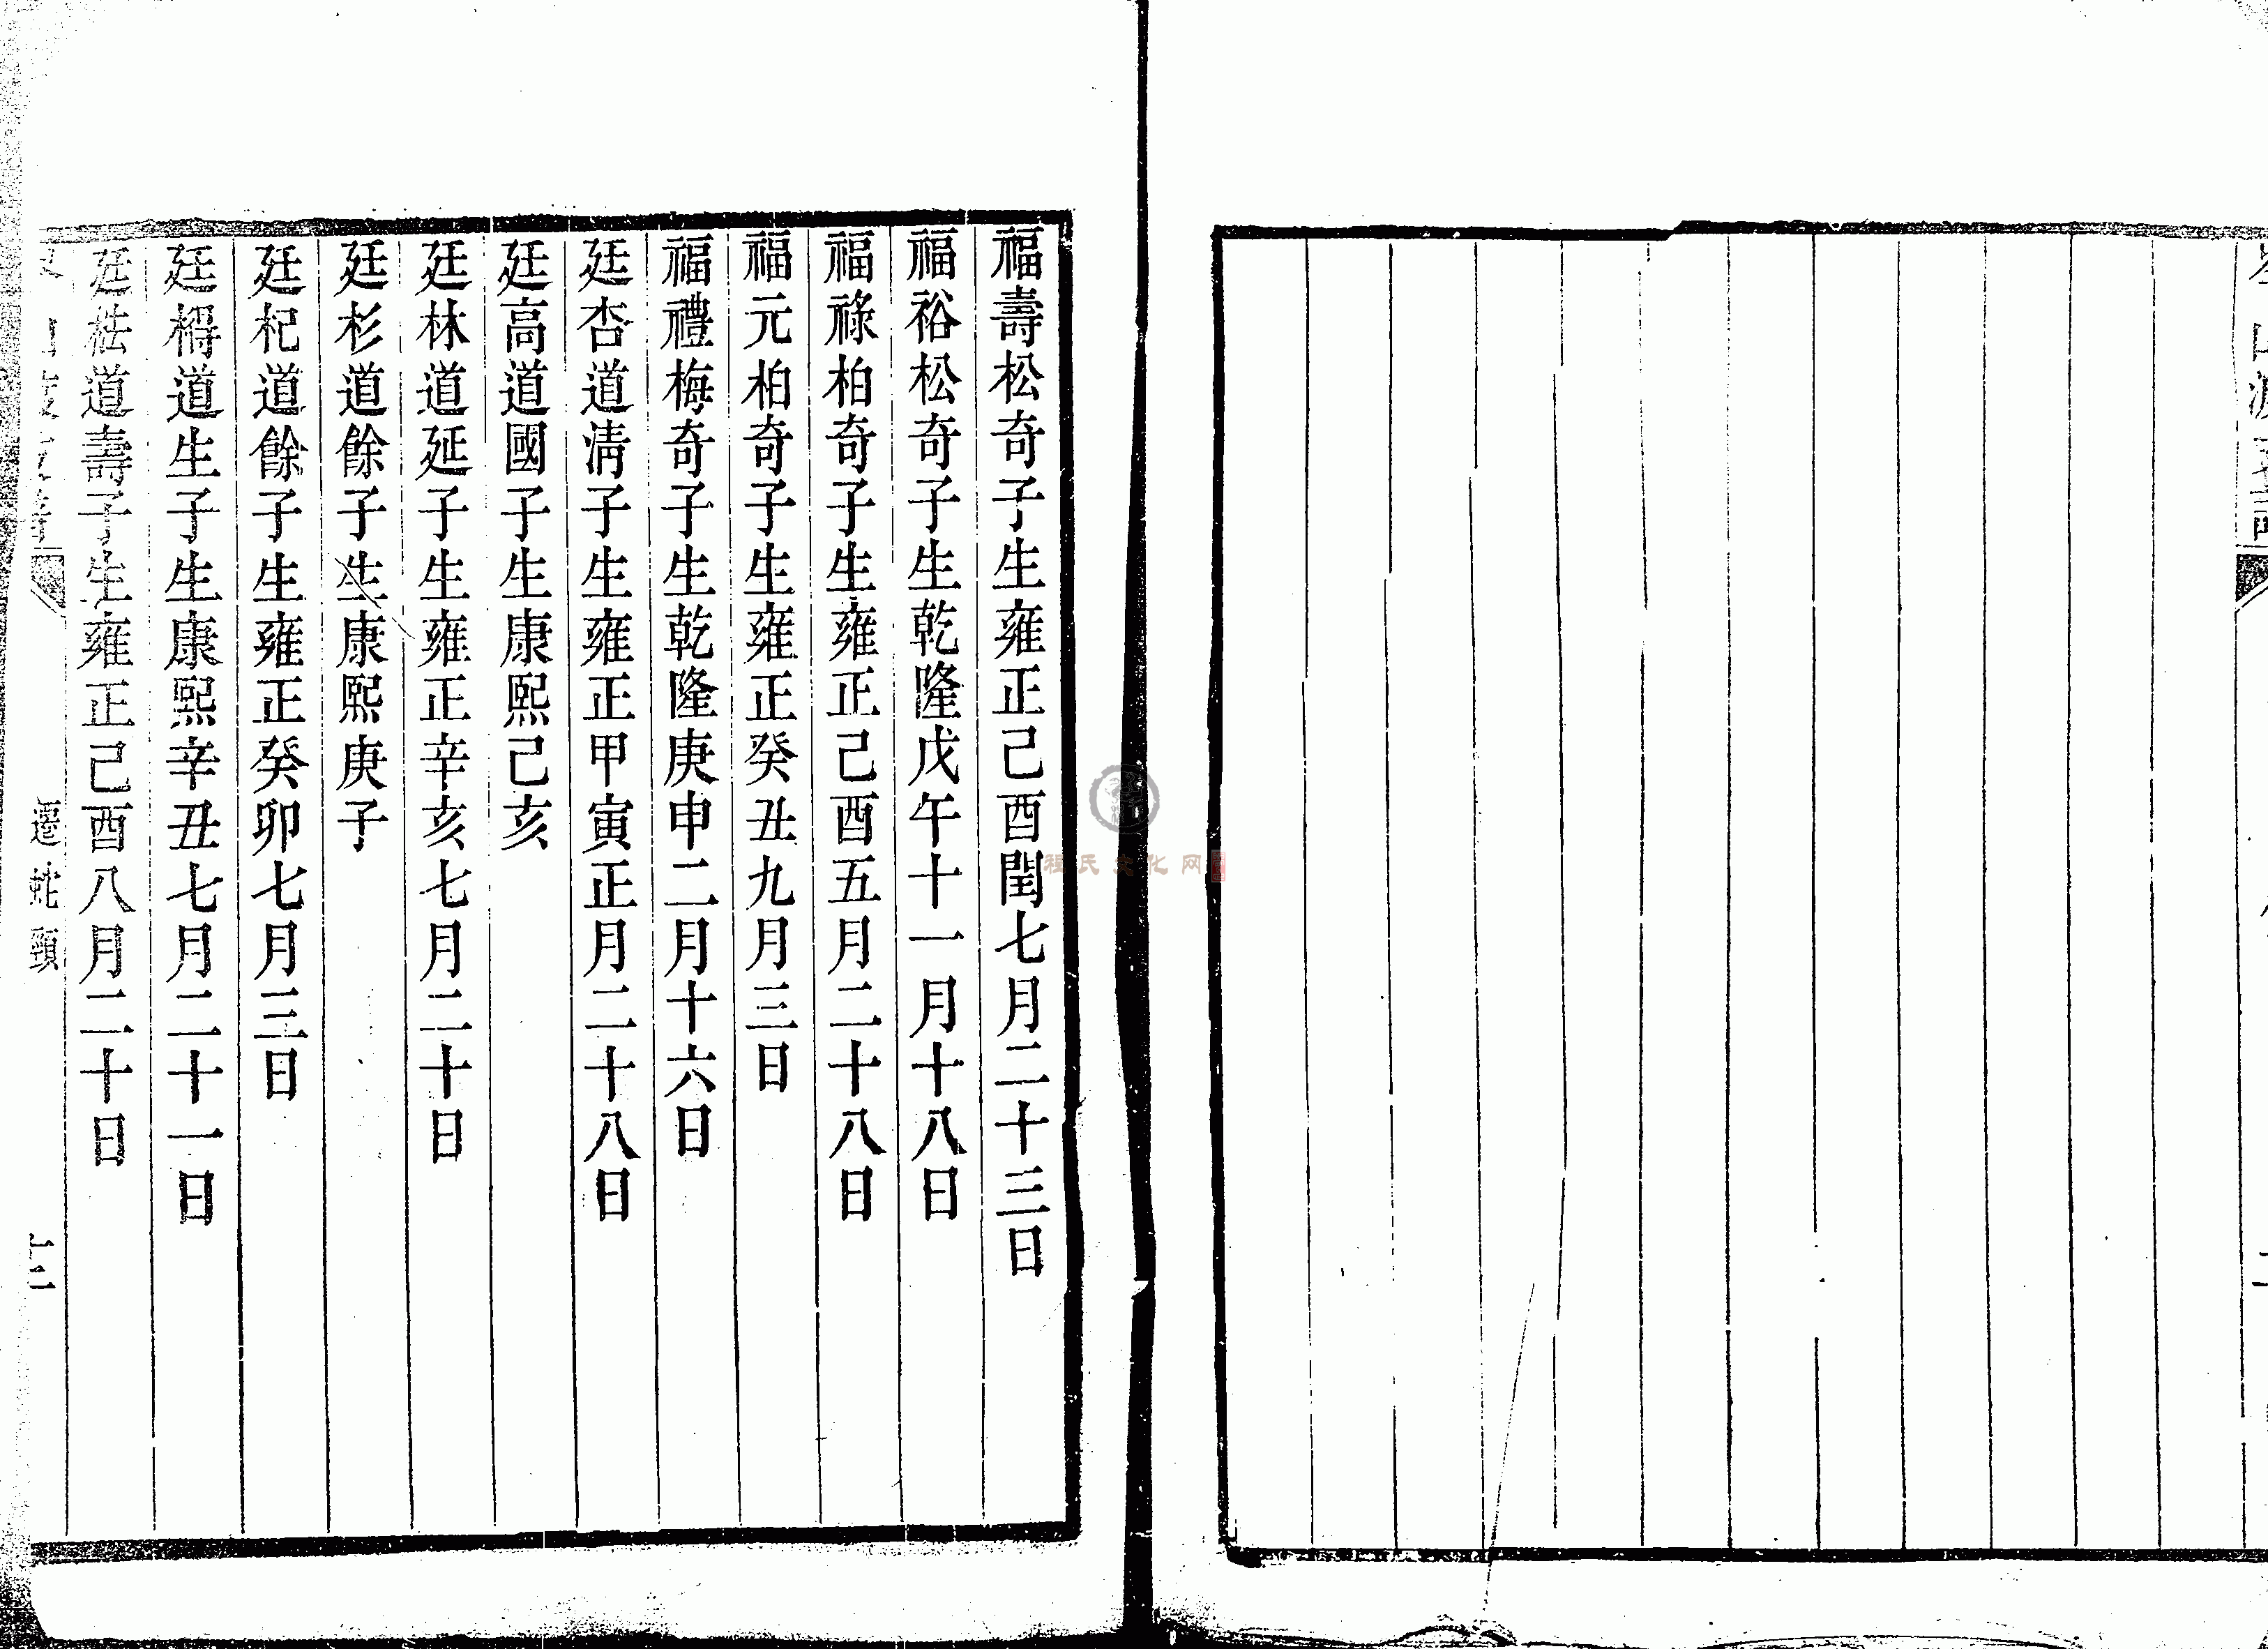 福壽松奇子生雍正己酉閏七月二十三日
福裕松奇子生乾隆戊午十一月十八日
福祿柏奇子生雍正己酉五月二十八日
福元柏奇子生雍正癸丑九月三日
福禮梅奇子生乾隆庚申二月十六日
廷杏道清子生雍正甲寅正月二十八日
廷高道國子生康熙己亥
廷林道延子生雍正辛亥七月二十日
廷杉道餘子生康熙庚子
廷杞道餘子生雍正癸卯七月三日
廷樳道生子生康熙辛丑七月二十一日
廷𣐤道壽子生雍正己酉八月二十日
遷蛇頸
十二
程氏文化网